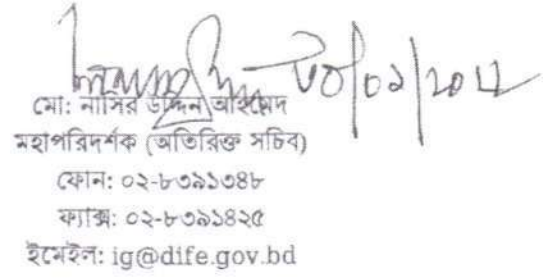 ৩০/০১/২০১৮
মো: নাসির উদ্দিন আহমেদ
মহাপরিদর্শক (অতিরিক্ত সচিব)
ফোন: ০২-৮৩৯১৩৪৮
ফ্যাক্স: ০২-৮৩৯১৪২৫
ইমেইল: ig@dife.gov.bd